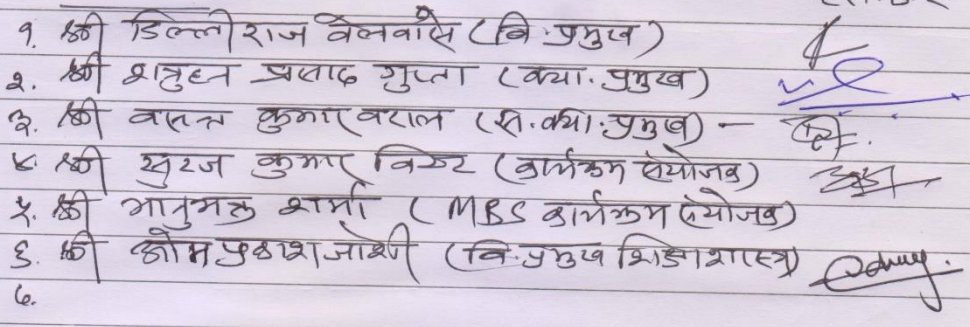 १. श्री डिल्लीराज वेलवासे (वि. प्रमुख)
२. श्री शत्रुघ्न प्रसाद गुप्ता (क्या. प्रमुख)
३. श्री वसन्त कुमार वराल (स. क्या. प्रमुख) –
४. श्री सुरज कुमार विष्ट (कार्यक्रम संयोजक)
५. श्री भानुभक्त शर्मा (MBS कार्यक्रम संयोजक)
६. श्री ओम प्रकाश जोशी (वि. प्रमुख शिक्षाशास्त्र)
७.